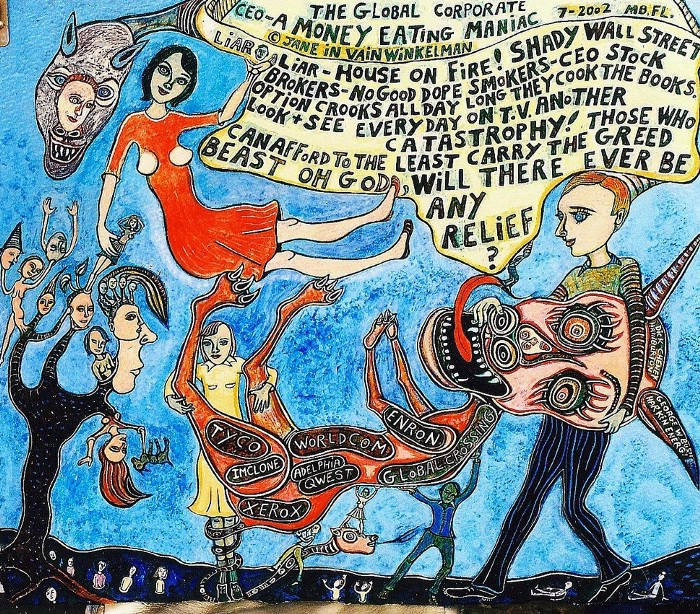 THE GLOBAL CORPORATE
CEO-A MONEY EATING MANIAC 7-2002 MB,FL.
© JANE IN VAIN WINKELMAN
LIAR
LIAR-HOUSE ON FIRE! SHADY WALL STREET
BROKERS-NO GOOD DOPE SMOKERS-CEO STOCK
OPTION CROOKS ALL DAY LONG THEY COOK THE BOOKS.
LOOK + SEE EVERY DAY ON T.V. ANOTHER
CATASTROPHY! THOSE WHO
CAN AFFORD TO THE LEAST CARRY THE GREED
BEAST OH GOD, WILL THERE EVER BE
ANY
RELIEF
?
TYCO
WORLDCOM
ENRON
IMCLONE
ADELPHIA
QWEST
GLOBAL CROSSING
XEROX
HALIBURTON
GEORGE W. BUSH
HARKEN ENERGY